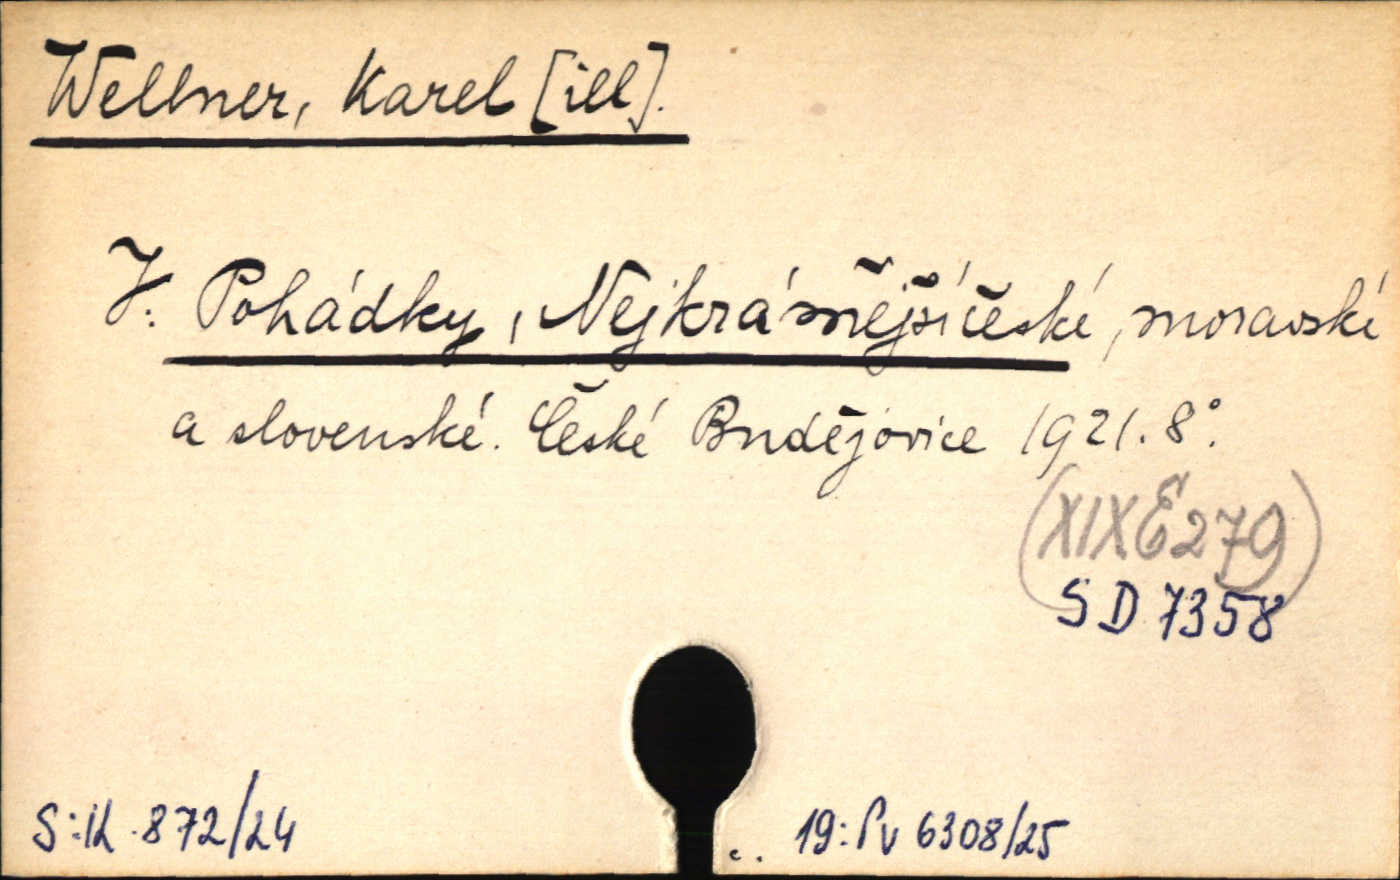 Wellner, Karel [ill].
V: Pohádky, Nejkrásnější české, moravské
a slovenské. České Budějovice 1921. 8°.
(XIX E 279)
SD 7358
S: K 872/24
19: Pv 6308/25